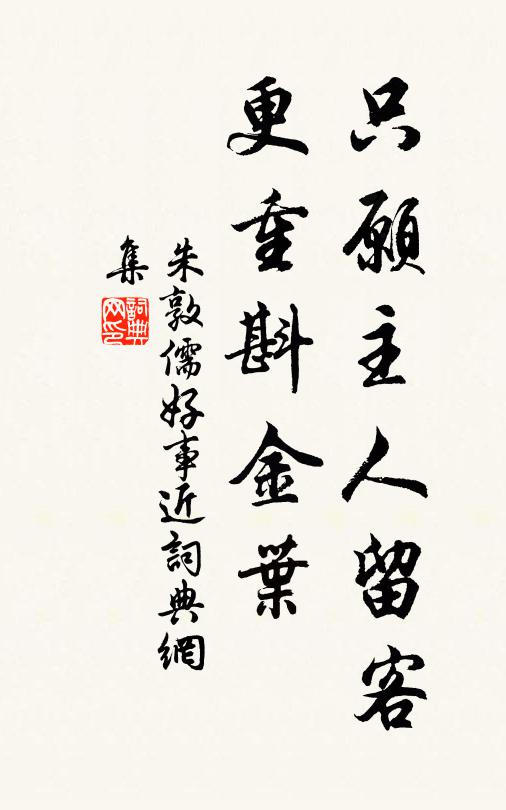 只願主人留客
更重斟金葉
朱敦儒好事近詞典網
集
詞典網印